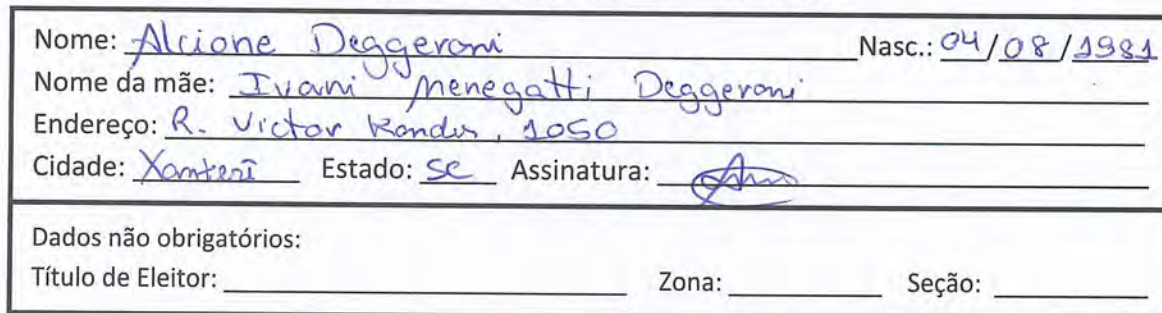 Nome: Alcione Deggeroni Nasc.: 04/08/1981
Nome da mãe: Ivani Menegatti Deggeroni
Endereço: R. Victor Konder, 1050
Cidade: Xanxerê Estado: SC Assinatura:
Dados não obrigatórios:
Título de Eleitor: Zona: Seção: